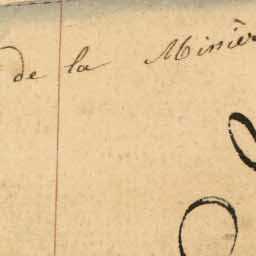 de la Minièr